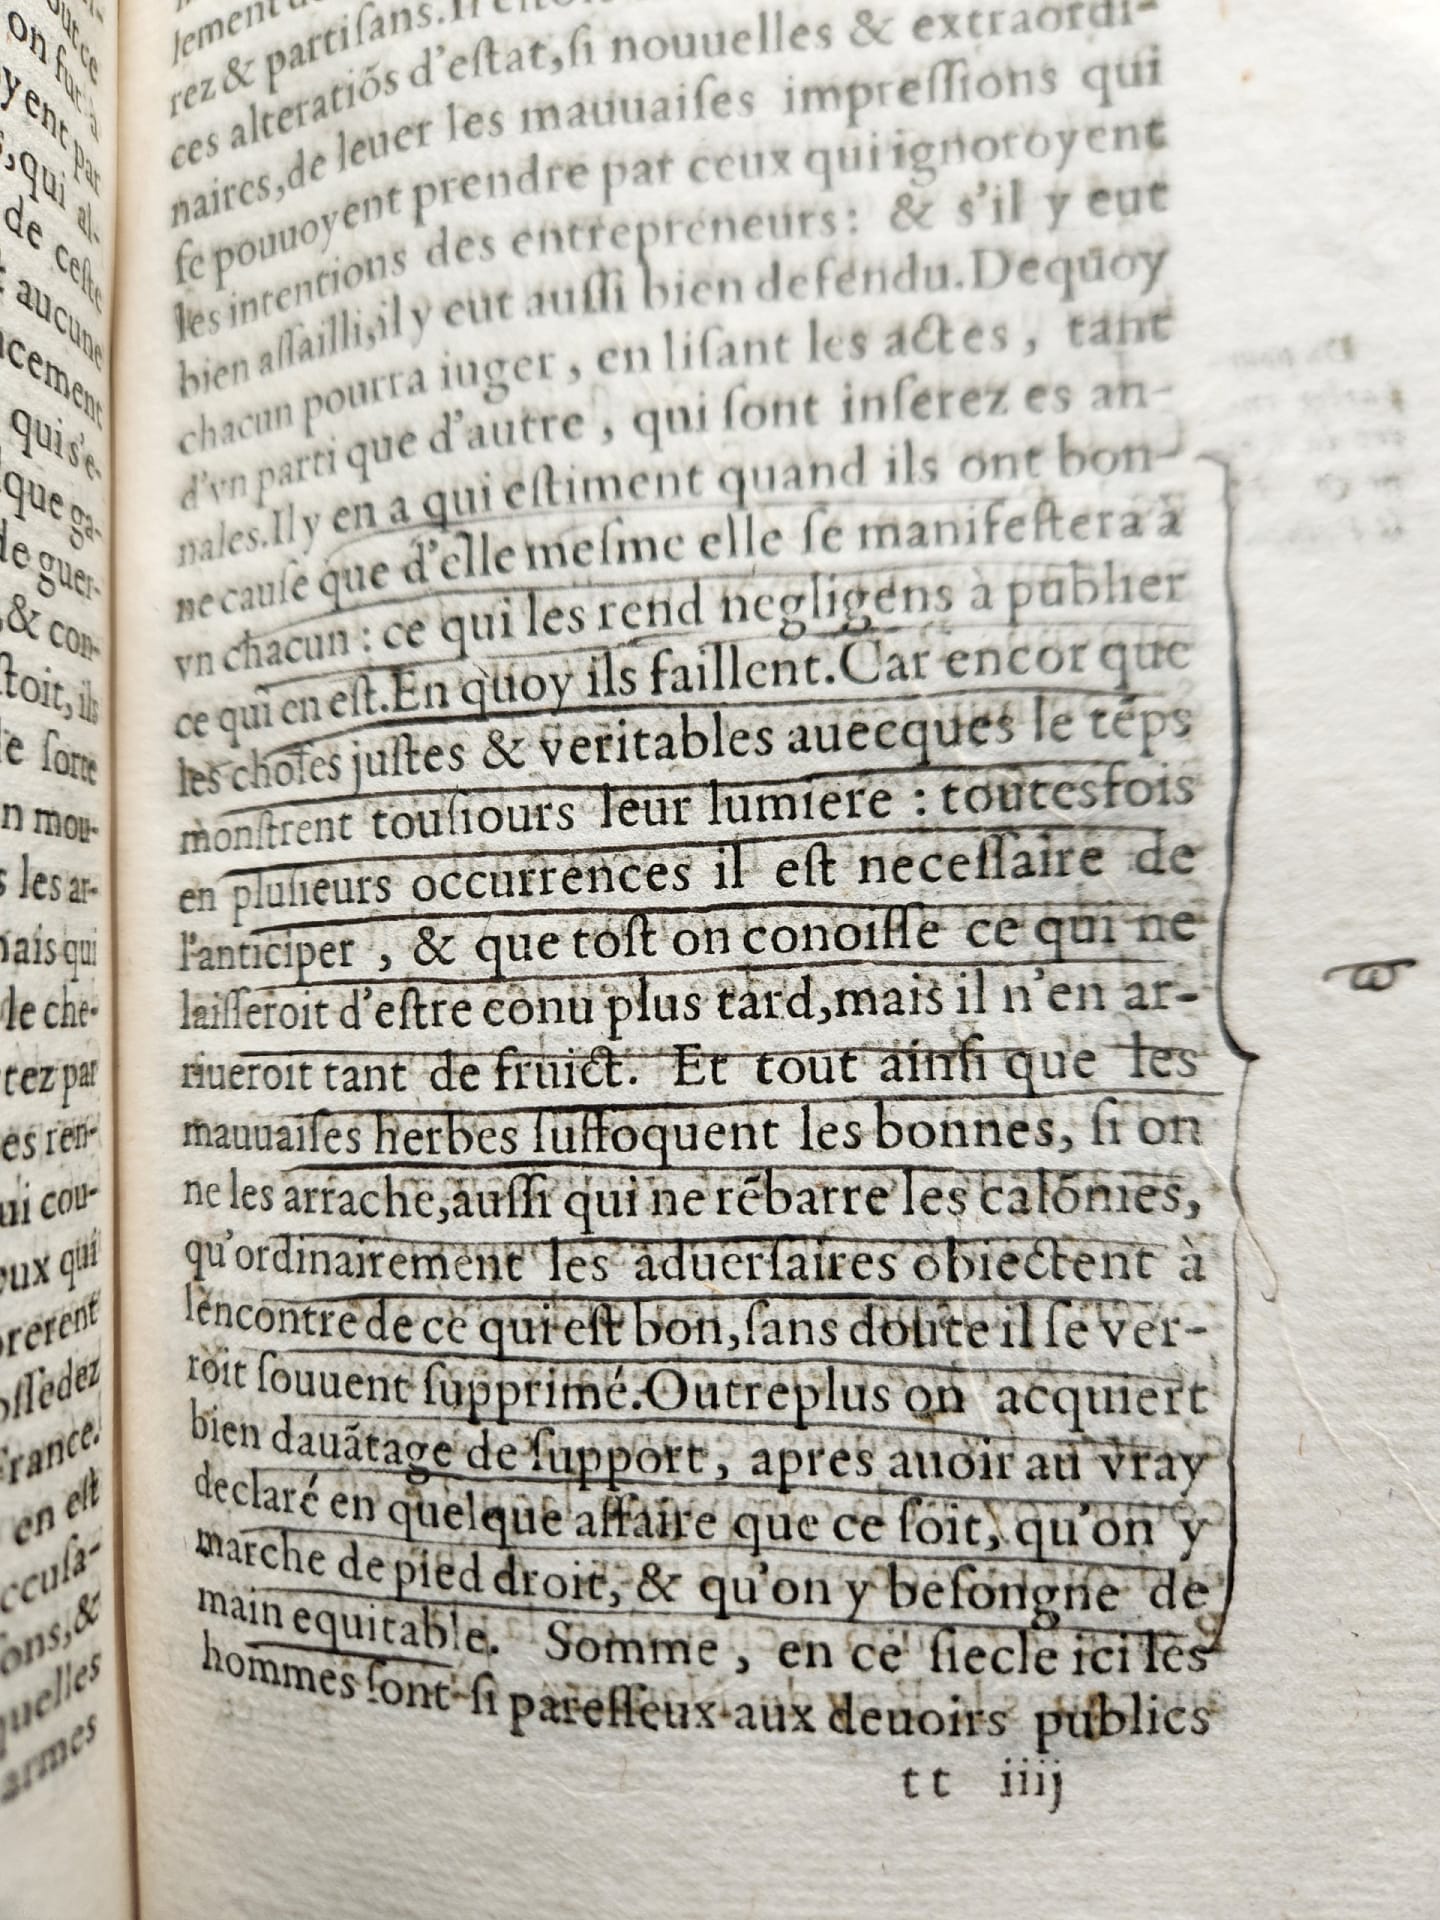 rez & partiſans. Il
ces alteratiõs d'eſtat, ſi nouuelles & extraordi-
naires, de leuer les mauuaiſes impreſſions qui
ſe pouuoyent prendre par ceux qui ignoroyent
les intentions des entrepreneurs: & s'il y eut
bien aſſailli, il y eut auſſi bien defendu. Dequoy
chacun pourra iuger, en liſant les actes, tant
d'vn parti que d'autre, qui ſont inſerez es an-
nales. Il y en a qui eſtiment quand ils ont bon-
ne cauſe que d'elle meſme elle ſe manifeſtera à
vn chacun: ce qui les rend negligens à publier
ce qui en eſt. En quoy ils faillent. Car encor que
les choſes juſtes & veritables auecques le tẽps
monſtrent touſiours leur lumiere: toutesfois
en pluſieurs occurrences il eſt neceſſaire de
l'anticiper, & que toſt on conoiſſe ce qui ne
laiſſeroit d'eſtre conu plus tard, mais il n'en ar-
riueroit tant de fruict. Et tout ainſi que les
mauuaiſes herbes ſuffoquent les bonnes, ſi on
ne les arrache, auſſi qui ne rẽbarre les calõnies,
qu'ordinairement les aduerſaires obiectent à
lencontre de ce qui eſt bon, ſans doute il ſe ver-
roit ſouuent ſupprimé. Outreplus on acquiert
bien dauãtage de ſupport, apres auoir au vray
declaré en quelque affaire que ce ſoit, qu'on y
marche de pied droit, & qu'on y beſongne de
main equitable. Somme, en ce ſiecle ici les
hommes ſont ſi pareſſeux aux deuoirs publics
tt iiij